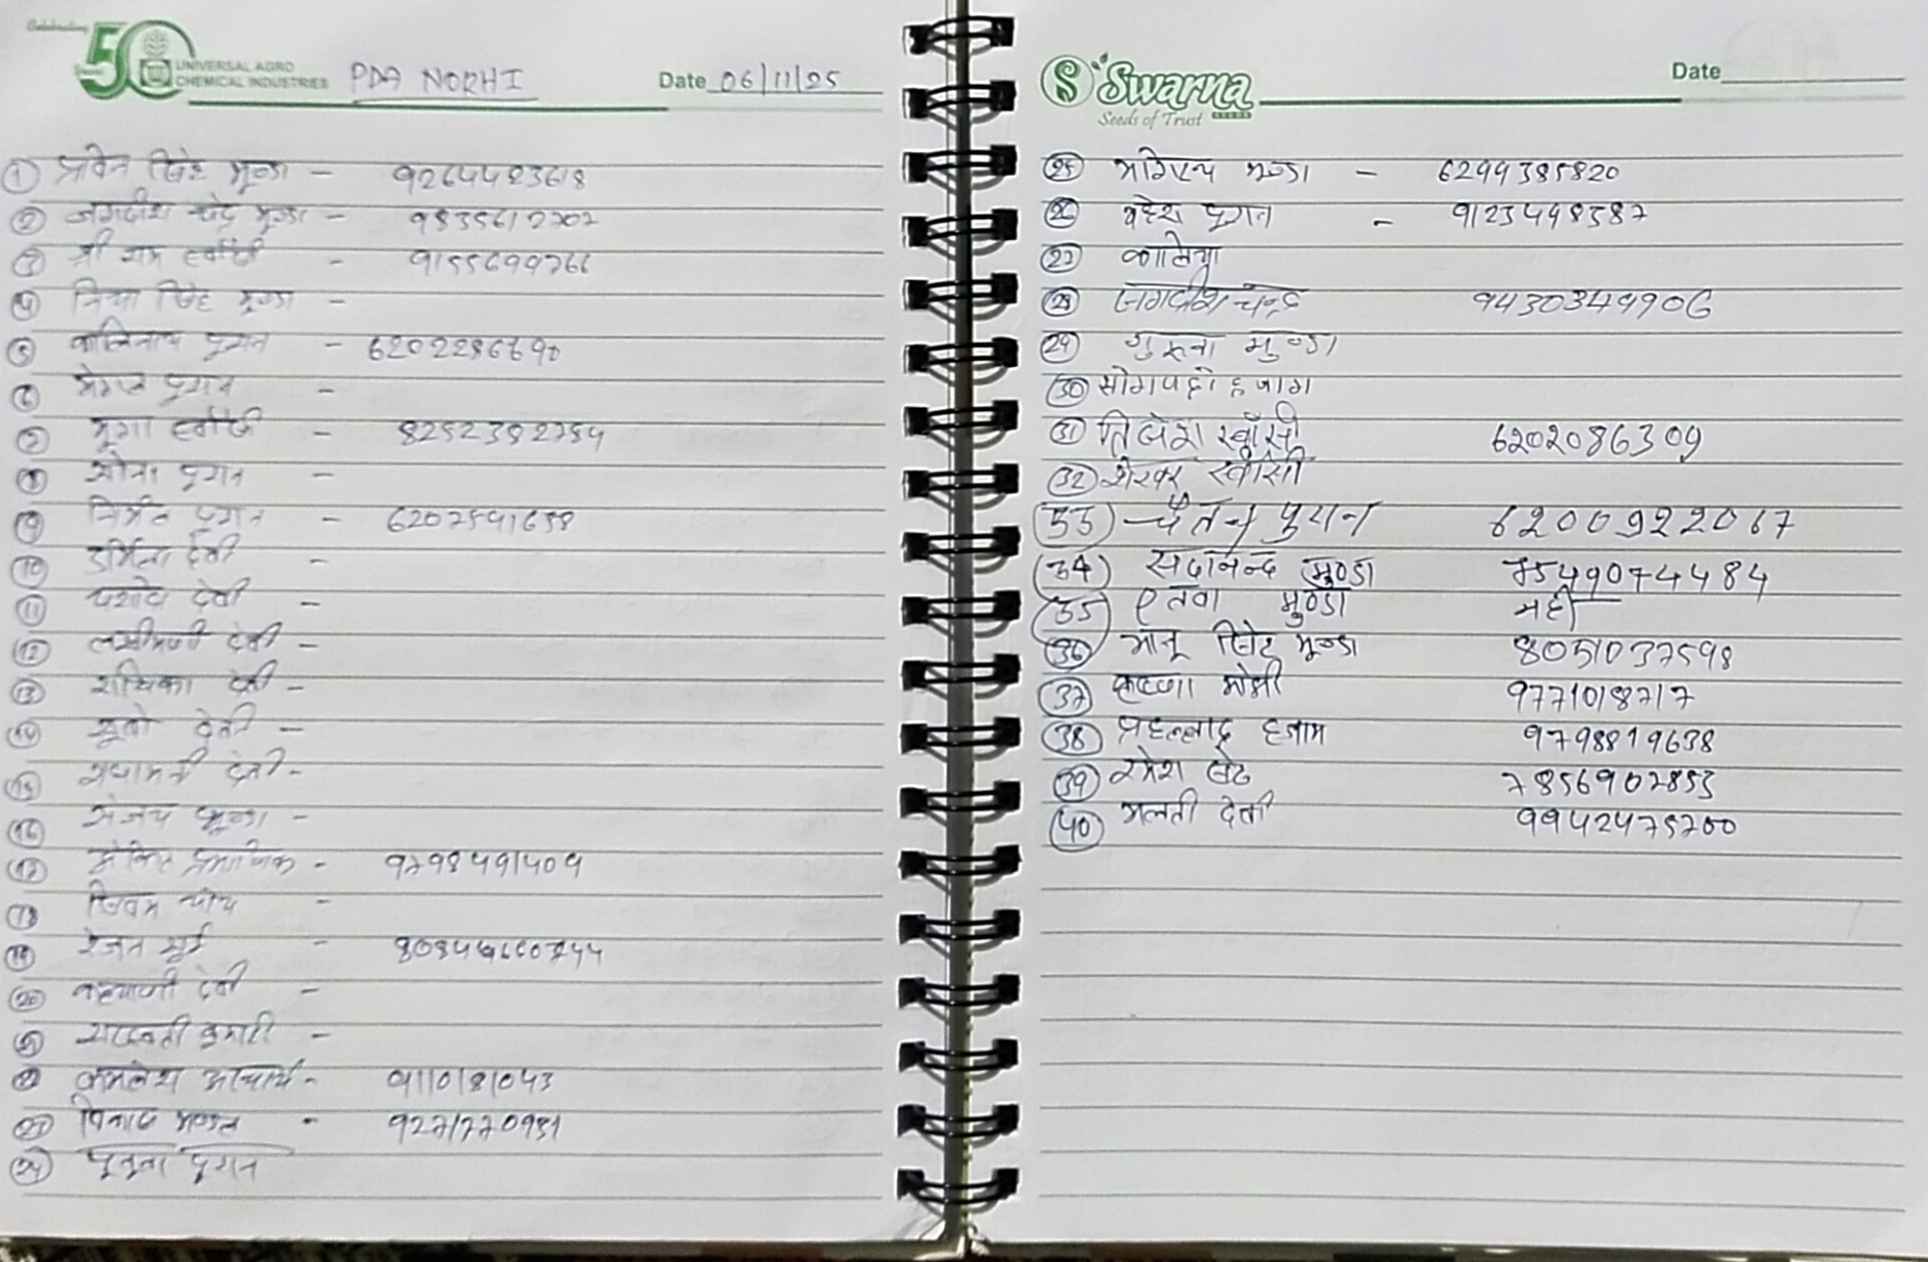 Celebrating
50
UNIVERSAL AGRO
CHEMICAL INDUSTRIES
PDA NORHI
Date 06/11/25
① प्रविन सिंह मूण्डा - 9264423618
② जगदीश चंद्र मूण्डा - 9835612702
③ श्री राम स्वांसी - 9155699766
④ नित्या सिंह मूण्डा -
⑤ कालिनाथ पुरान - 6202296690
⑥ पुरान -
⑦ मूगा स्वांसी - 8252392754
⑧ सोना पुरान -
⑨ निर्मल पुरान - 6202591658
⑩ उर्मिला देवी -
⑪ यशोदे देवी -
⑫ लखीमणी देवी -
⑬ राधिका देवी -
⑭ देवी -
⑮ देवी -
⑯ संजय मूण्डा -
⑰ प्रमाणिक - 9798491409
⑱ -
⑲ - 808446660744
⑳ कल्याणी देवी -
㉑ कुमारी -
㉒ कमलेश आचार्य - 9110181043
㉓ मण्डल - 9271770951
㉔ पुरान
Swarna
SEEDS
Seeds of Trust
Date
㉕ मूण्डा - 6299385820
㉖ महेश पुरान - 9123448387
㉗ कालिया
㉘ जगदीश चन्द्र 9430349906
㉙ गुरूवा मुण्डा
㉚ हजाम
㉛ स्वाँसी 6202086309
㉜ शेखर स्वाँसी
33 चैतन पुरान 62009922067
34 सदानन्द मुण्डा 7549074484
35 एतवा मुण्डा नही
36 भानू सिंह मूण्डा 8051037598
37 कृष्णा माझी 9771018717
38 प्रहल्लाद हजाम 9798819638
39 रमेश बेट 7856902853
40 मलती देवी 9942475700